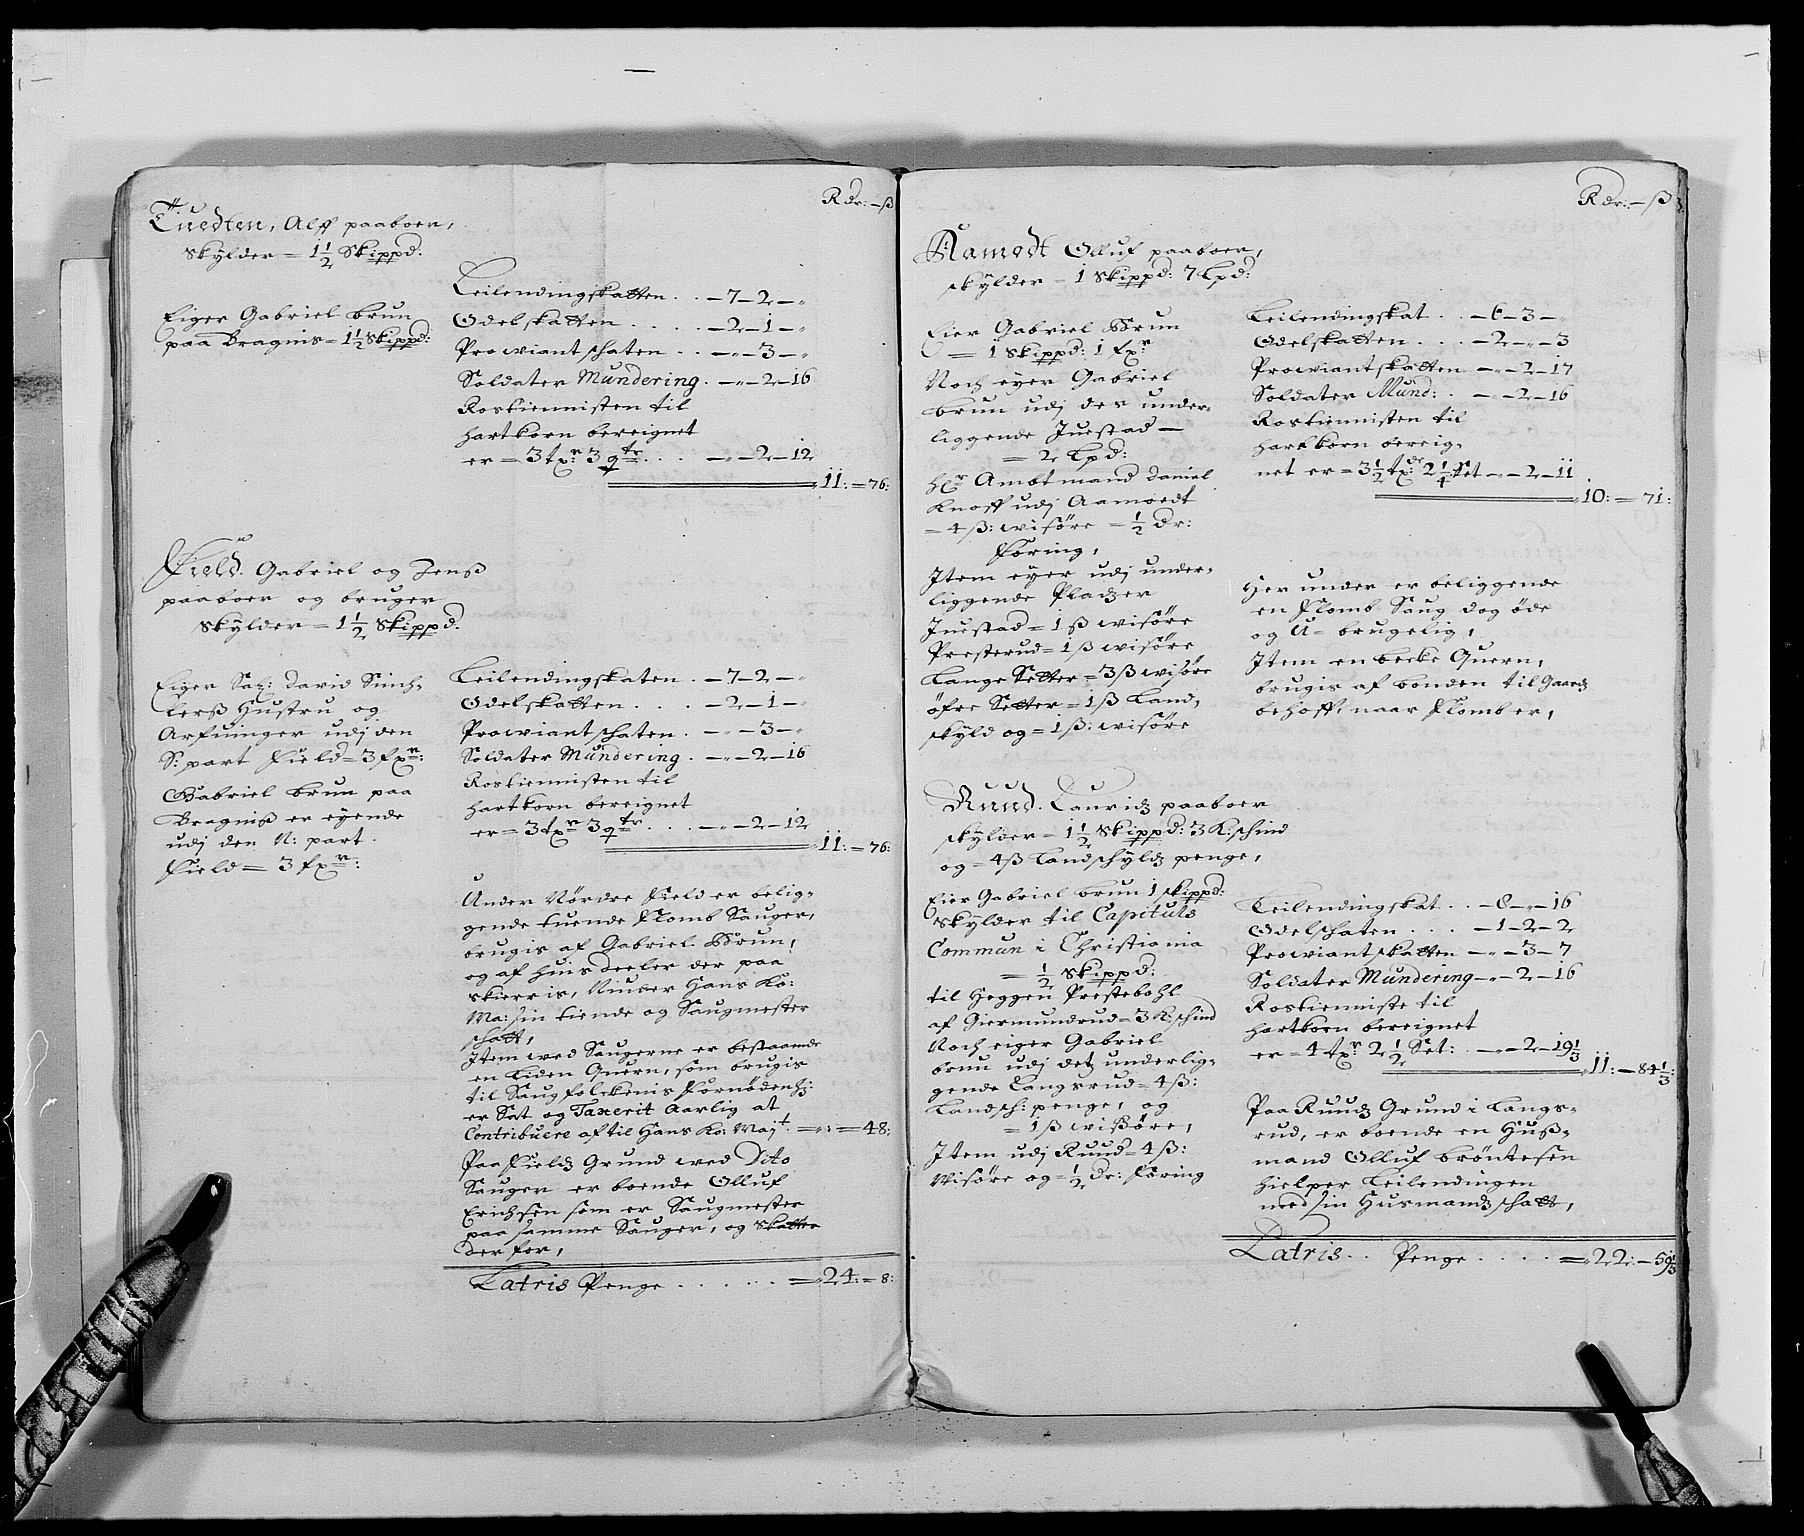 Rdr: – ß
Tuedten, Alff paaboer,
skÿlder = 1½ Skippd.
Eiger Gabriel brun
paa Bragnis = 1½ Skippd:
Leilendingskatten . . – 7 – 2 – „
Odelskatten . . . . – 2 – 1 – „
Prowiant schaten . . – „ – 3 – „
Soldater Mundering . – „ – 2 – 16
Rostiennisten til
hartkorn bereignet
er = 3 txr: 3 qtr . . . – „ – 2 – 12
11: = 76:
Field. Gabriel og Jenß
paaboer og bruger
skÿlder = 1½ Skippd.
Eiger Sal: David Sinch-
lerß Hustru og
Arfuinger udj den
S: part Field = 3 fxr:
Gabriel brun paa
Bragniß er eÿende
udj den N: part.
Field = 3 fxr:
Leilendingskaten . – 7 – 2 – „
Odelskatten . . . . – 2 – 1 – „
Prowiant schaten . – „ – 3 – „
Soldater Mundering . – „ – 2 – 16
Rostiennisten til
hartkorn bereignet
er = 3 txr 3 qtr . . . – „ – 2 – 12
11: = 76:
Under Nördre Field er belig-
gende tuende Flomb Sauger,
brugis af Gabriel Brun,
og af huis deeler der paa
skierris, Niuder Hans Ko:
Ma: sin tiende og Saugmester
schatt,
Item wed Saugerne er bestaaende
en liden Quern, som brugis
til Saugfolckenis Fornödenh:
er Sat og Taxerit Aarlig at
Contribuere af til Hans Ko: Majt. = „ : = 48:
Paa Fieldz Grund wed Dito
Sauger er boende Olluf
Erichsen som er Saugmester
paa samme Sauger, og skatter
der for,
Latris Penge . . . . . . = 24: = 8:
Rdr: – ß
Aamodt Olluf paaboer,
skÿlder = 1 Skippd: 7 Lpd:
Eier Gabriel Brun
= 1 Skippd: 1 fxr
Noch eÿer Gabriel
brun udj des under-
liggende Juestad –
= 2 Lpd:
Hr Ambtmand Daniel
Knoff udj Aamoedt
= 4 ß: wisöre = ½ Dr:
Föring,
Item eÿer udj under-
liggende Pladzer
Juestad = 1 ß wisöre
Presterud = 1 ß wisöre
Lange Setter = 3 ß wisöre
öfre Setter = 1 ß Land,
skÿld og = 1 ß: wisöre
Leilendingskat . . – 6 – 3 – „
Odelskatten . . . – 2 – „ – 3
Prowiantskatten – „ – 2 – 17
Soldater Mund: . – „ – 2 – 16
Rostiennisten til
hartkorn bereig-
net er = 3½ txr: 2¼ Set – „ – 2 – 11
10: = 71:
Her under er beliggende
en Flomb Saug dog öde
og U = brugelig,
Item en becke Quern,
brugis af bonden til Gaardz
behoff, naar Flomb er,
Ruud. Lauridz paaboer
skÿlder = 1½ Skippd: 3 K: schind
og = 4 ß Landschÿldz penge,
Eier Gabriel brun 1 skippd:
skÿlder til Capituls
Commun i Christiania
= ½ Skippd:
til Heggen Prestebohl
af Giermundrud = 3 K: schind
Noch eiger Gabriel
brun udj detz underlig-
gende Langsrud = 4 ß:
Landsch: penge, og
= 1 ß wisöre,
Item udj Ruud = 4 ß:
Wisöre og = ½ Dr: Föring
Leilendingskat . . – 8 – „ – 16
Odelschaten . . . – 1 – 2 – 2
Prowiantskatten – „ – 3 – 7
Soldater Mundering – „ – 2 – 16
Rostienniste til
hartkorn bereignet
er = 4 txr 2½ Set: . – „ – 2 – 19⅓
11: – 84⅓:
Paa Ruudz Grund i Langs-
rud, er boende en Huß-
mand Olluf bröntesen
hielper Leilendingen
med sin Husmandz schatt,
Latris . . Penge . . . . = 22: – 59⅓